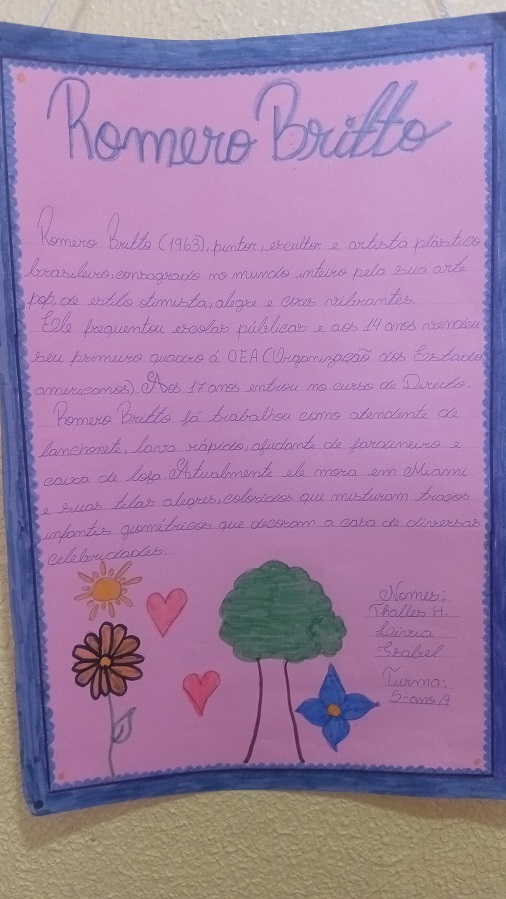 Romero Britto
Romero Britto (1963), pintor, escultor e artista plástico
brasileiro, consagrado no mundo inteiro pela sua arte
pop, de estilo otimista, alegre e cores vibrantes.
Ele frequentou escolas públicas e aos 14 anos vendeu
seu primeiro quadro á OEA (Organização dos Estados
americanos). Aos 17 anos entrou no curso de Direito.
Romero Britto já trabalhou como atendente de
lanchonete, lava rápido, ajudante de jardineiro e
caixa de loja. Atualmente ele mora em Miami
e suas telas alegres, coloridas que misturam traços
infantis geométricos que decoram a casa de diversas
celebridades.
Nomes:
Thalles H.
Isabel
Turma:
5º ano A